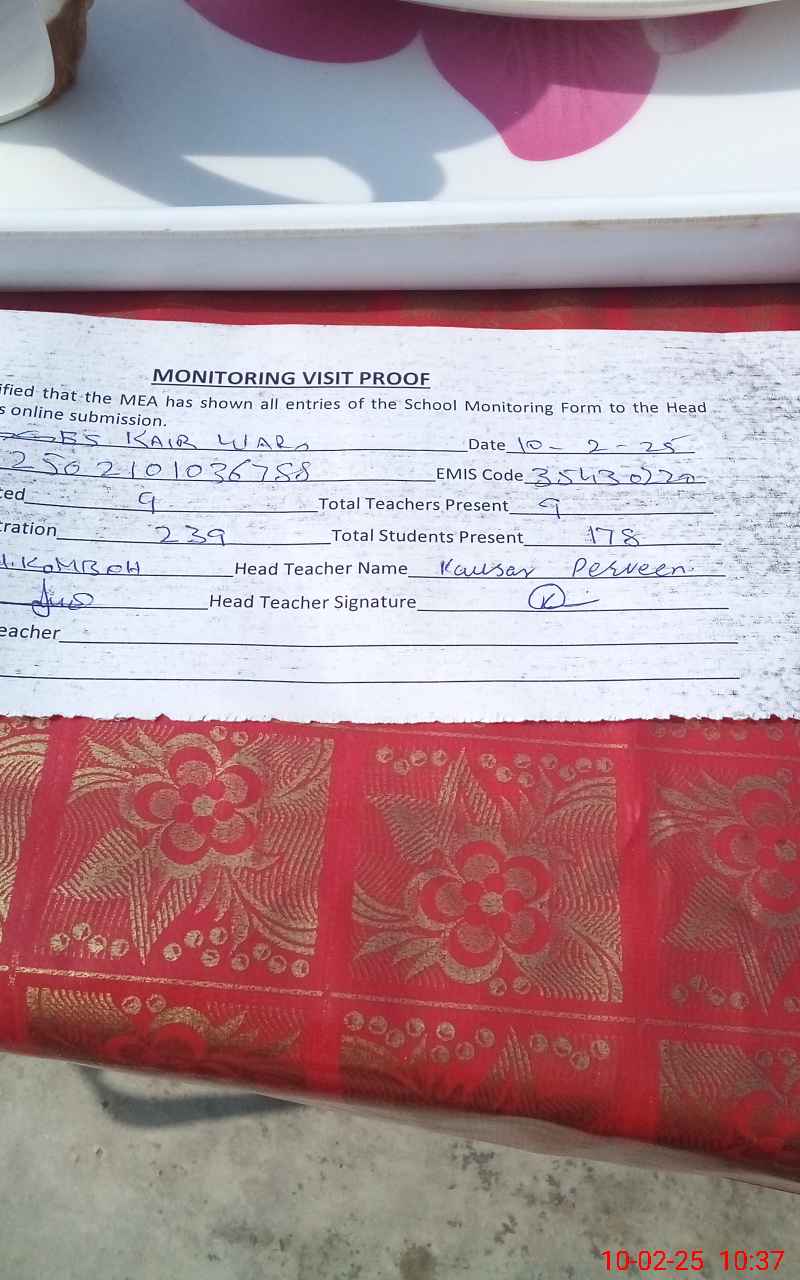 MONITORING VISIT PROOF
ified that the MEA has shown all entries of the School Monitoring Form to the Head
s online submission.
KAIR Date 10-2-25
2502101036788 EMIS Code
ted 9 Total Teachers Present 9
tration 239 Total Students Present 178
KOMBOH Head Teacher Name Kausar Perveen.
Head Teacher Signature
eacher
10-02-25 10:37